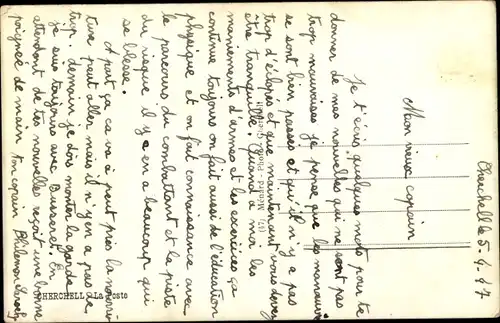 Cherchell le 5. 4. 47
Mon vieux copain
Je t'écris quelques mots pour te
donner de mes nouvelles qui ne sont pas
trop mauvaises je pense que les manœuvre
se sont bien passés et qu'il n'y a pas
trop d'éclopés et que maintenant vous devez
être tranquille. Quand à moi les
maniements d'armes et les exercices ça
continue toujours on fait aussi de l'éducation
physique et on fait connaissance avec
le parcours du combattant et la piste
du risque il y en a beaucoup qui
se blesse.
A part ça ca va à peut près la nourri
ture peut aller mais il n'y en a pas de
trop. demain je dois monter la garde
je suis toujours avec Busseret. En
attendant de tes nouvelles reçoit une bonne
poignée de main ton copain Philemon
CHERCHELL - La Poste